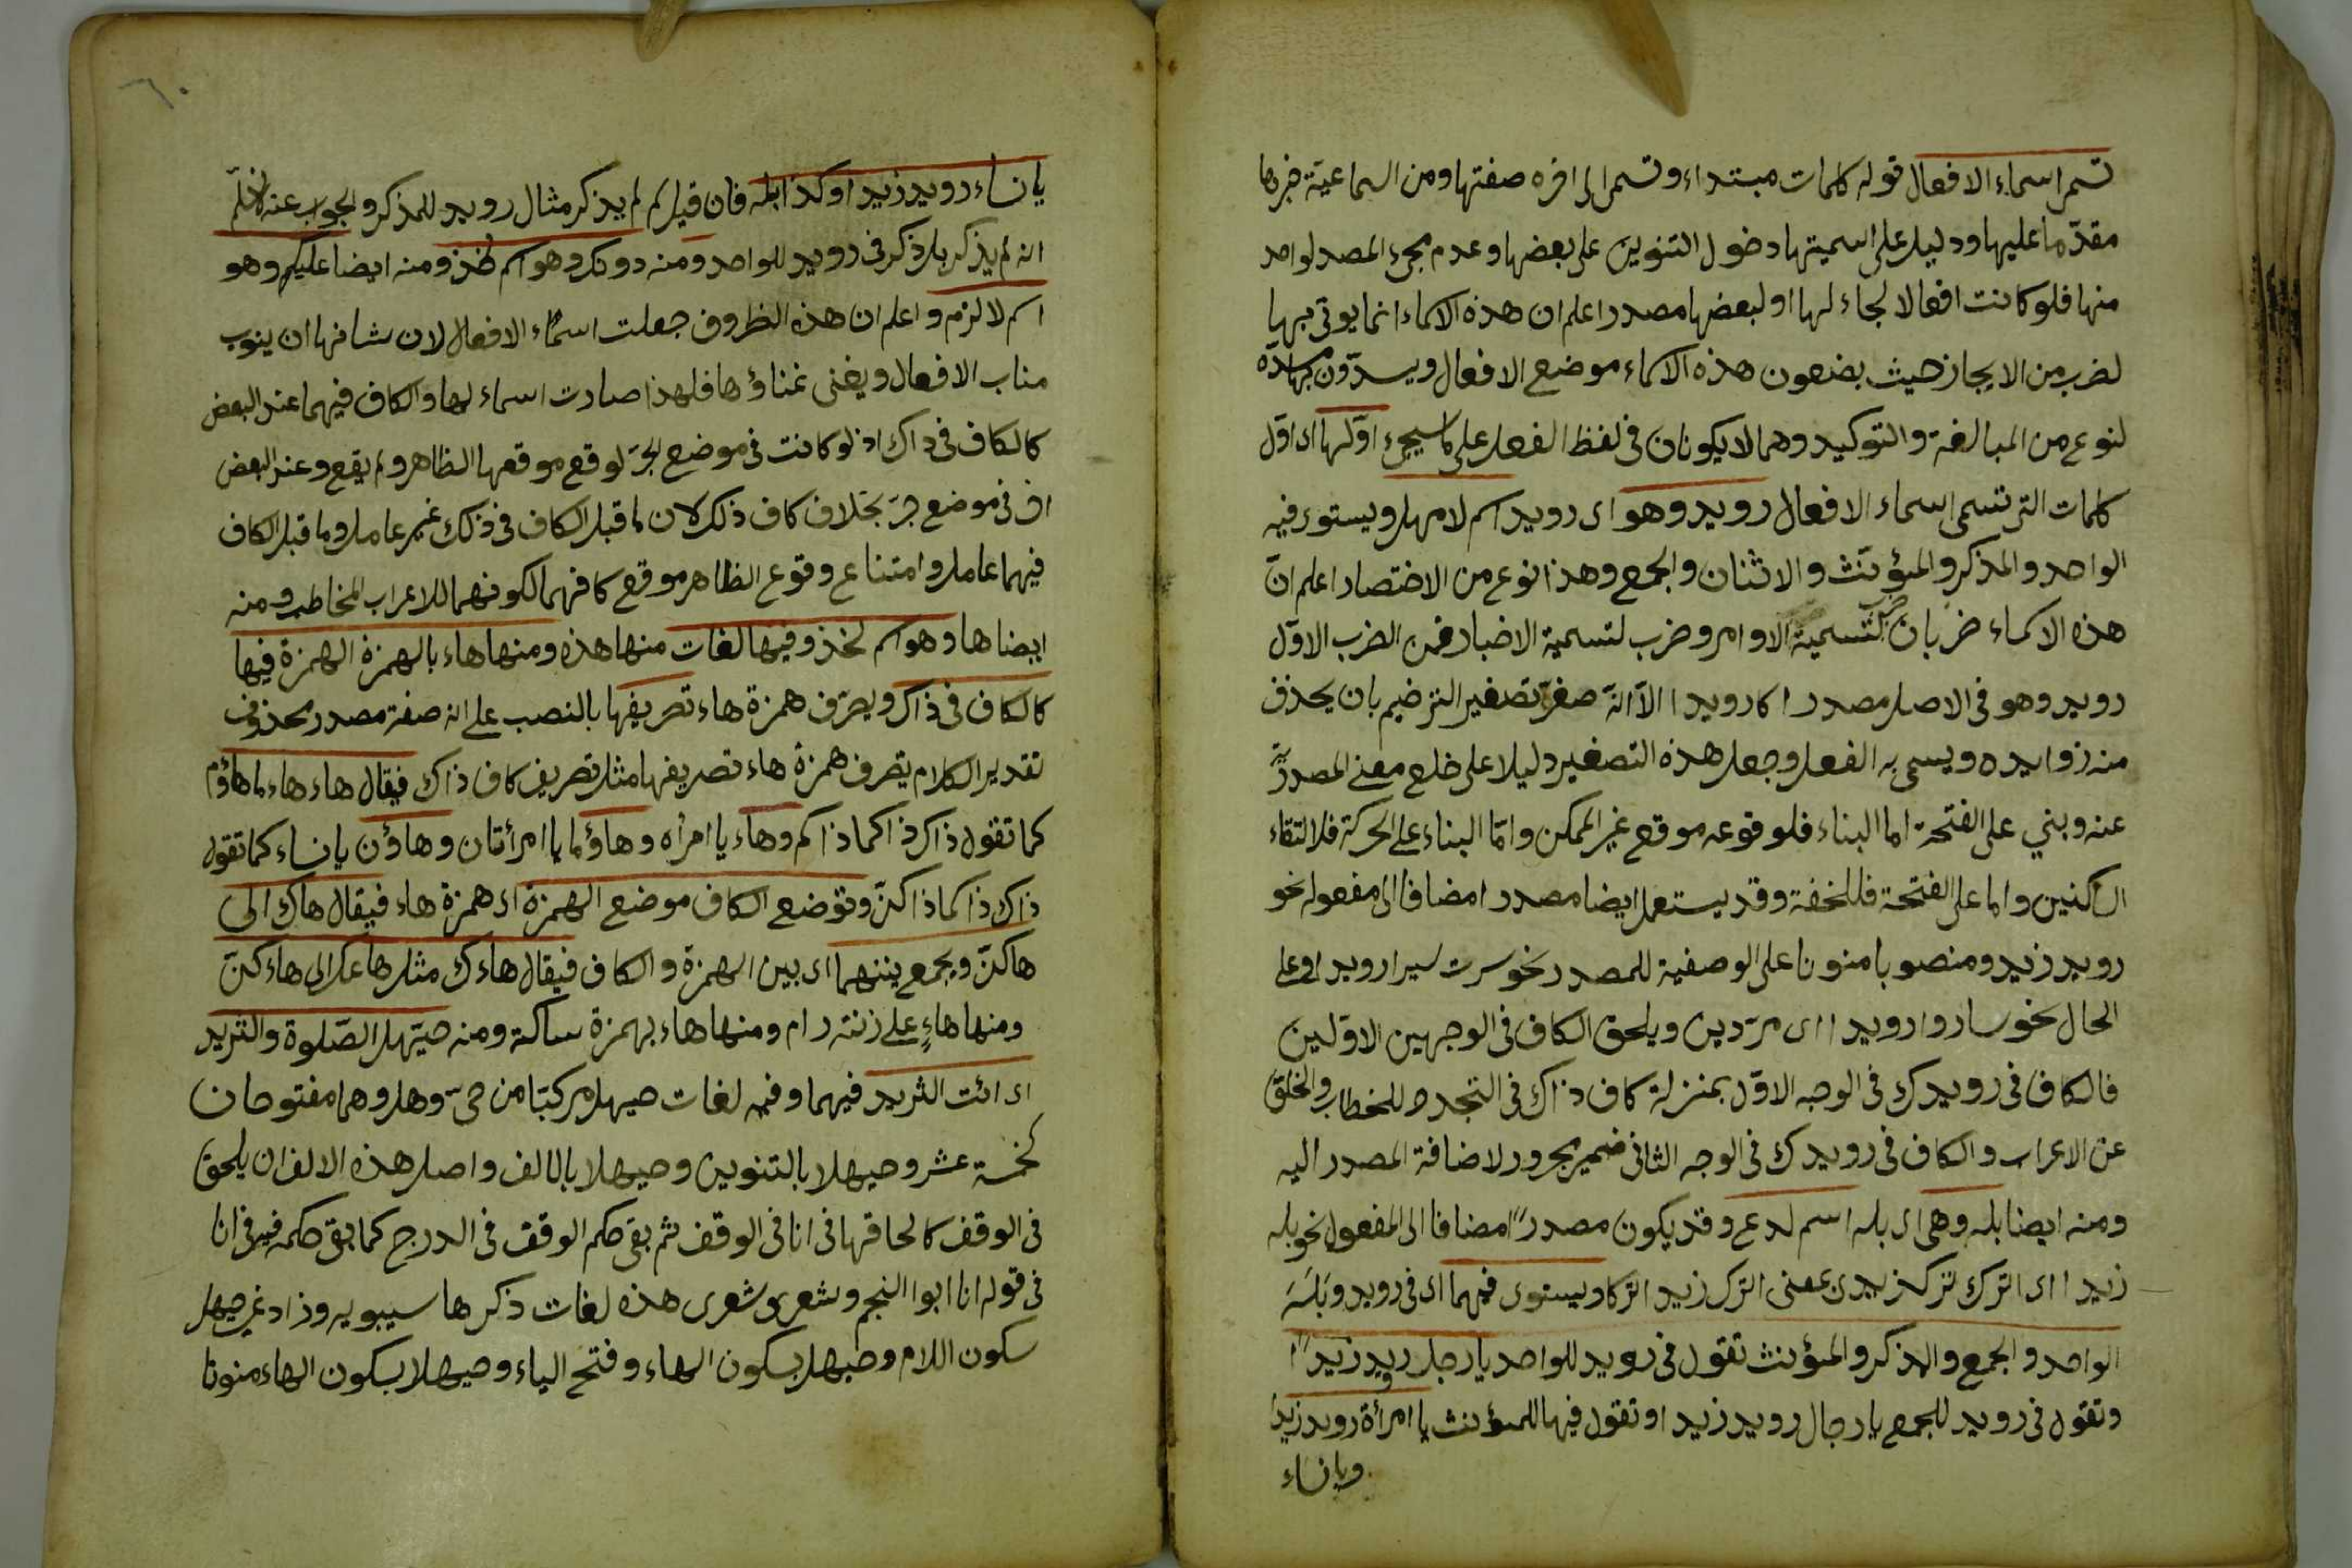 تسمى اسماء الافعال قوله كلمات مبتداء وتسمى الى اخره صفتها ومن السماعية خبرها
مقدّما عليها ودليل على اسميتها دخول التنوين على بعضها وعدم مجئ المصدر لواحد
منها فلو كانت افعالا لجاء لها او لبعضها مصدر اعلم ان هذه الاسماء انما يوتى بها
لضرب من الايجاز حيث يضعون هذه الاسماء موضع الافعال ويسدّون
لنوع من المبالغة والتوكيد وهما لا يكونان فى لفظ الفعل على ما سيجئ اوّلها اى اوّل
كلمات التى تسمى اسماء الافعال رويد وهو اى رويد اسم لامهل ويستوى فيه
الواحد والمذكر والمؤنث والاثنان والجمع وهذا نوع من الاختصار اعلم انّ
هذه الاسماء ضربان ضرب لتسمية الاوامر وضرب لتسمية الاخبار فمن الضرب الاوّل
رويد وهو فى الاصل مصدر اى ارويد الّا انّه صغّر تصغير الترخيم بان يحذف
منه زوايده ويسمى به الفعل وجعل هذه التصغير دليلا على خلع معنى المصدريّة
عنه وبني على الفتحة اما البناء فلوقوعه موقع غير الممكن وامّا البناء على الحركة فلالتقاء
الساكنين واما على الفتحة فللخفة وقد يستعمل ايضا مصدرا مضافا الى مفعوله نحو
رويد زيد ومنصوبا منونا على الوصفية للمصدر نحو سرت سيرا رويدا وعلى
الحال نحو ساروا رويدا اى مرّدين ويلحق الكاف فى الوجهين الاوّلين
فالكاف فى رويدك فى الوجه الاوّل بمنزلة كاف ذاك فى التجدد للخطاب والخلوّ
عن الاعراب والكاف فى رويدك فى الوجه الثانى ضمير مجرور لاضافة المصدر اليه
ومنه ايضا بله وهى اى بله اسم لدع وقد يكون مصدرا مضافا الى المفعول نحو بله
زيد اى الترك ترك زيد بمعنى اترك زيد اتركا ويستوى فيهما اى فى رويد وبَلَهَ
الواحد والجمع والمذكر والمؤنث تقول فى رويد للواحد يا رجل رويد زيدا
وتقول فى رويد للجمع يا رجال رويد زيدا وتقول فيها للمؤنث يا امرأة رويد زيدا
ويا نساء
٦٠
يا نساء رويد زيدا وكذا بله فان قيل لم لم يذكر مثال رويد للمذكر والجواب عنه
انه لم يذكر بل ذكر فى رويد للواحد ومنه دونك وهو اسم لخذ ومنه ايضا عليكم وهو
اسم لالزم واعلم ان هذه الظروف جعلت اسماء الافعال لان شانها ان ينوب
مناب الافعال ويغنى غناؤها فلهذا صارت اسماء لها والكاف فيهما عند البعض
كالكاف فى ذاك اذ لو كانت فى موضع الجرّ لوقع موقعها الظاهر ولم يقع وعند البعض
انه فى موضع جرّ بخلاف كاف ذلك لان ما قبل الكاف فى ذلك غير عامل وما قبل الكاف
فيهما عامل وامتناع وقوع الظاهر موقع كافهما لكونهما للاعراب المخاطب ومنه
ايضا ها وهو اسم لخذ وفيها لغات منها هذه ومنها هاء بالهمزة الهمزة فيها
كالكاف فى ذاك ويصرّف همزة هاء تصريفها بالنصب على انه صفة مصدر محذوف
تقدير الكلام يتصرف همزة هاء تصريفها مثل تصريف كاف ذاك فيقال هاء هاءما هاؤم
كما تقول ذاك ذاكما ذاكم وهاء يا امرأه وهاؤما يا امرأتان وهاؤن يا نساء كما تقول
ذاك ذاكما ذاكنّ وتوضع الكاف موضع الهمزة اى همزة هاء فيقال هاك الى
هاكنّ ويجمع بينهما اى بين الهمزة والكاف فيقال هاءك مثل هاعك الى هاءكنّ
ومنها هاءٍ على زنة رام ومنها هاء بهمزة ساكنة ومنه حيّهل الصّلوة والثريد
اى ائت الثريد فيهما وفيه لغات حيهل مركبّا من حىّ وهل وهما مفتوحان
كخمسة عشر وحيهلا بالتنوين وحيهلا بالالف واصل هذه الالف ان يلحق
فى الوقف كالحاقها فى انا فى الوقف ثم بقى حكم الوقف فى الدرج كما بقى حكمه فى انا
فى قوله انا ابوا النجم وشعرى شعرى هذه لغات ذكرها سيبويه وزاد غيره حيهل
سكون اللام وحيهل بسكون الهاء وفتح الياء وحيهلا بسكون الهاء منونا